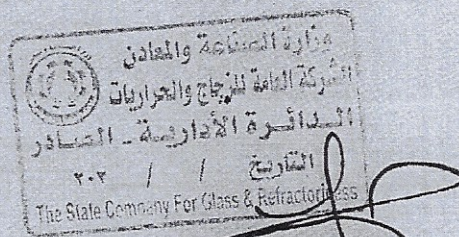 وزارة الصناعة والمعادن
الشركة العامة للزجاج والحراريات
الدائرة الأدارية - الصادر
التاريخ / / ٢٠٢
The State Company For Glass & Refractories